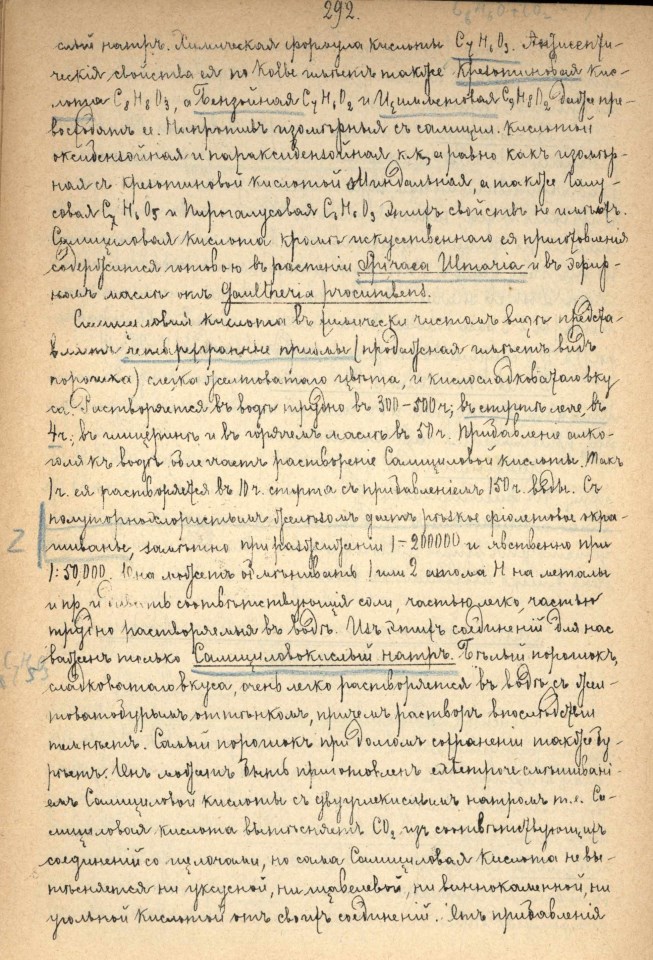 292.
слый натръ. Химическая формула кислоты C7H6O3. Антисепти-
ческія свойства ея по Кольбе имѣетъ также Крезотиновая кис-
лота C8H8O3, а Бензойная C7H6O2 и Циммтовая C9H8O2 даже пре-
восходятъ ее. Напротивъ изомѣрныя съ салицил. кислотой
оксибензойная и параксибензойная к.к., а равно какъ изомѣр-
ная съ Крезотиновой кислотой Миндальная, а также Галу-
совая C7H6O5 и Пирогалусовая C6H6O3 этихъ свойствъ не имѣютъ.
Салициловая кислота кромѣ искусственнаго ея приготовленія
содержится готовою въ растеніи Spiraea Ulmaria и въ эфир-
номъ маслѣ отъ Gaultheria procumbens.
Салициловая кислота въ химически чистомъ видѣ предста-
вляетъ четырегранные призмы (продажная имѣетъ видъ
порошка) слегка желтоватаго цвѣта, и кислосладковатаго вку
са. Растворяется въ водѣ трудно въ 300-500ч; въ спиртѣ легче, въ
4ч; въ глицеринѣ и въ горячемъ маслѣ въ 50ч. Прибавленіе алко-
голя къ водѣ облегчаетъ раствореніе Салициловой кислоты. Такъ
1ч. ея растворяется въ 10ч. спирта съ прибавленіемъ 150ч. воды. Съ
полуторнохлористымъ желѣзомъ даетъ рѣзкое фіолетовое окра-
шиванье, замѣтно при разжиженіи 1-200000 и явственно при
1:50,000. Она можетъ обмѣнивать 1 или 2 атома H на металы
и пр. и давать соотвѣтствующія соли, частью легко, частью
трудно растворяемыя въ водѣ. Изъ этихъ соединеній для нас
важенъ только Салициловокислый натръ. Бѣлый порошокъ,
сладковатаго вкуса, очень легко растворяется въ водѣ съ жел-
товатобурымъ оттѣнкомъ, причемъ растворъ впослѣдствіи
темнѣетъ. Самый порошокъ при долгомъ сохраненіи также бу-
рѣетъ. Онъ можетъ быть приготовленъ смѣшивані-
емъ Салициловой кислоты съ двууглекислымъ натромъ т.е. Са-
лициловая кислота вытѣсняетъ CO2 изъ соотвѣтствующихъ
соединеній со щелочами, но сама Салициловая кислота не вы-
тѣсняется ни уксусной, ни щавелевой, ни виннокаменной, ни
угольной кислотой отъ своихъ соединеній. Отъ прибавленія